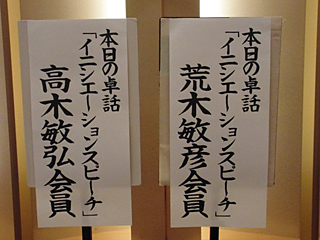 本日の卓話
「イニシエーションスピーチ」
荒木敏彦会員
本日の卓話
「イニシエーションスピーチ」
高木敏弘会員